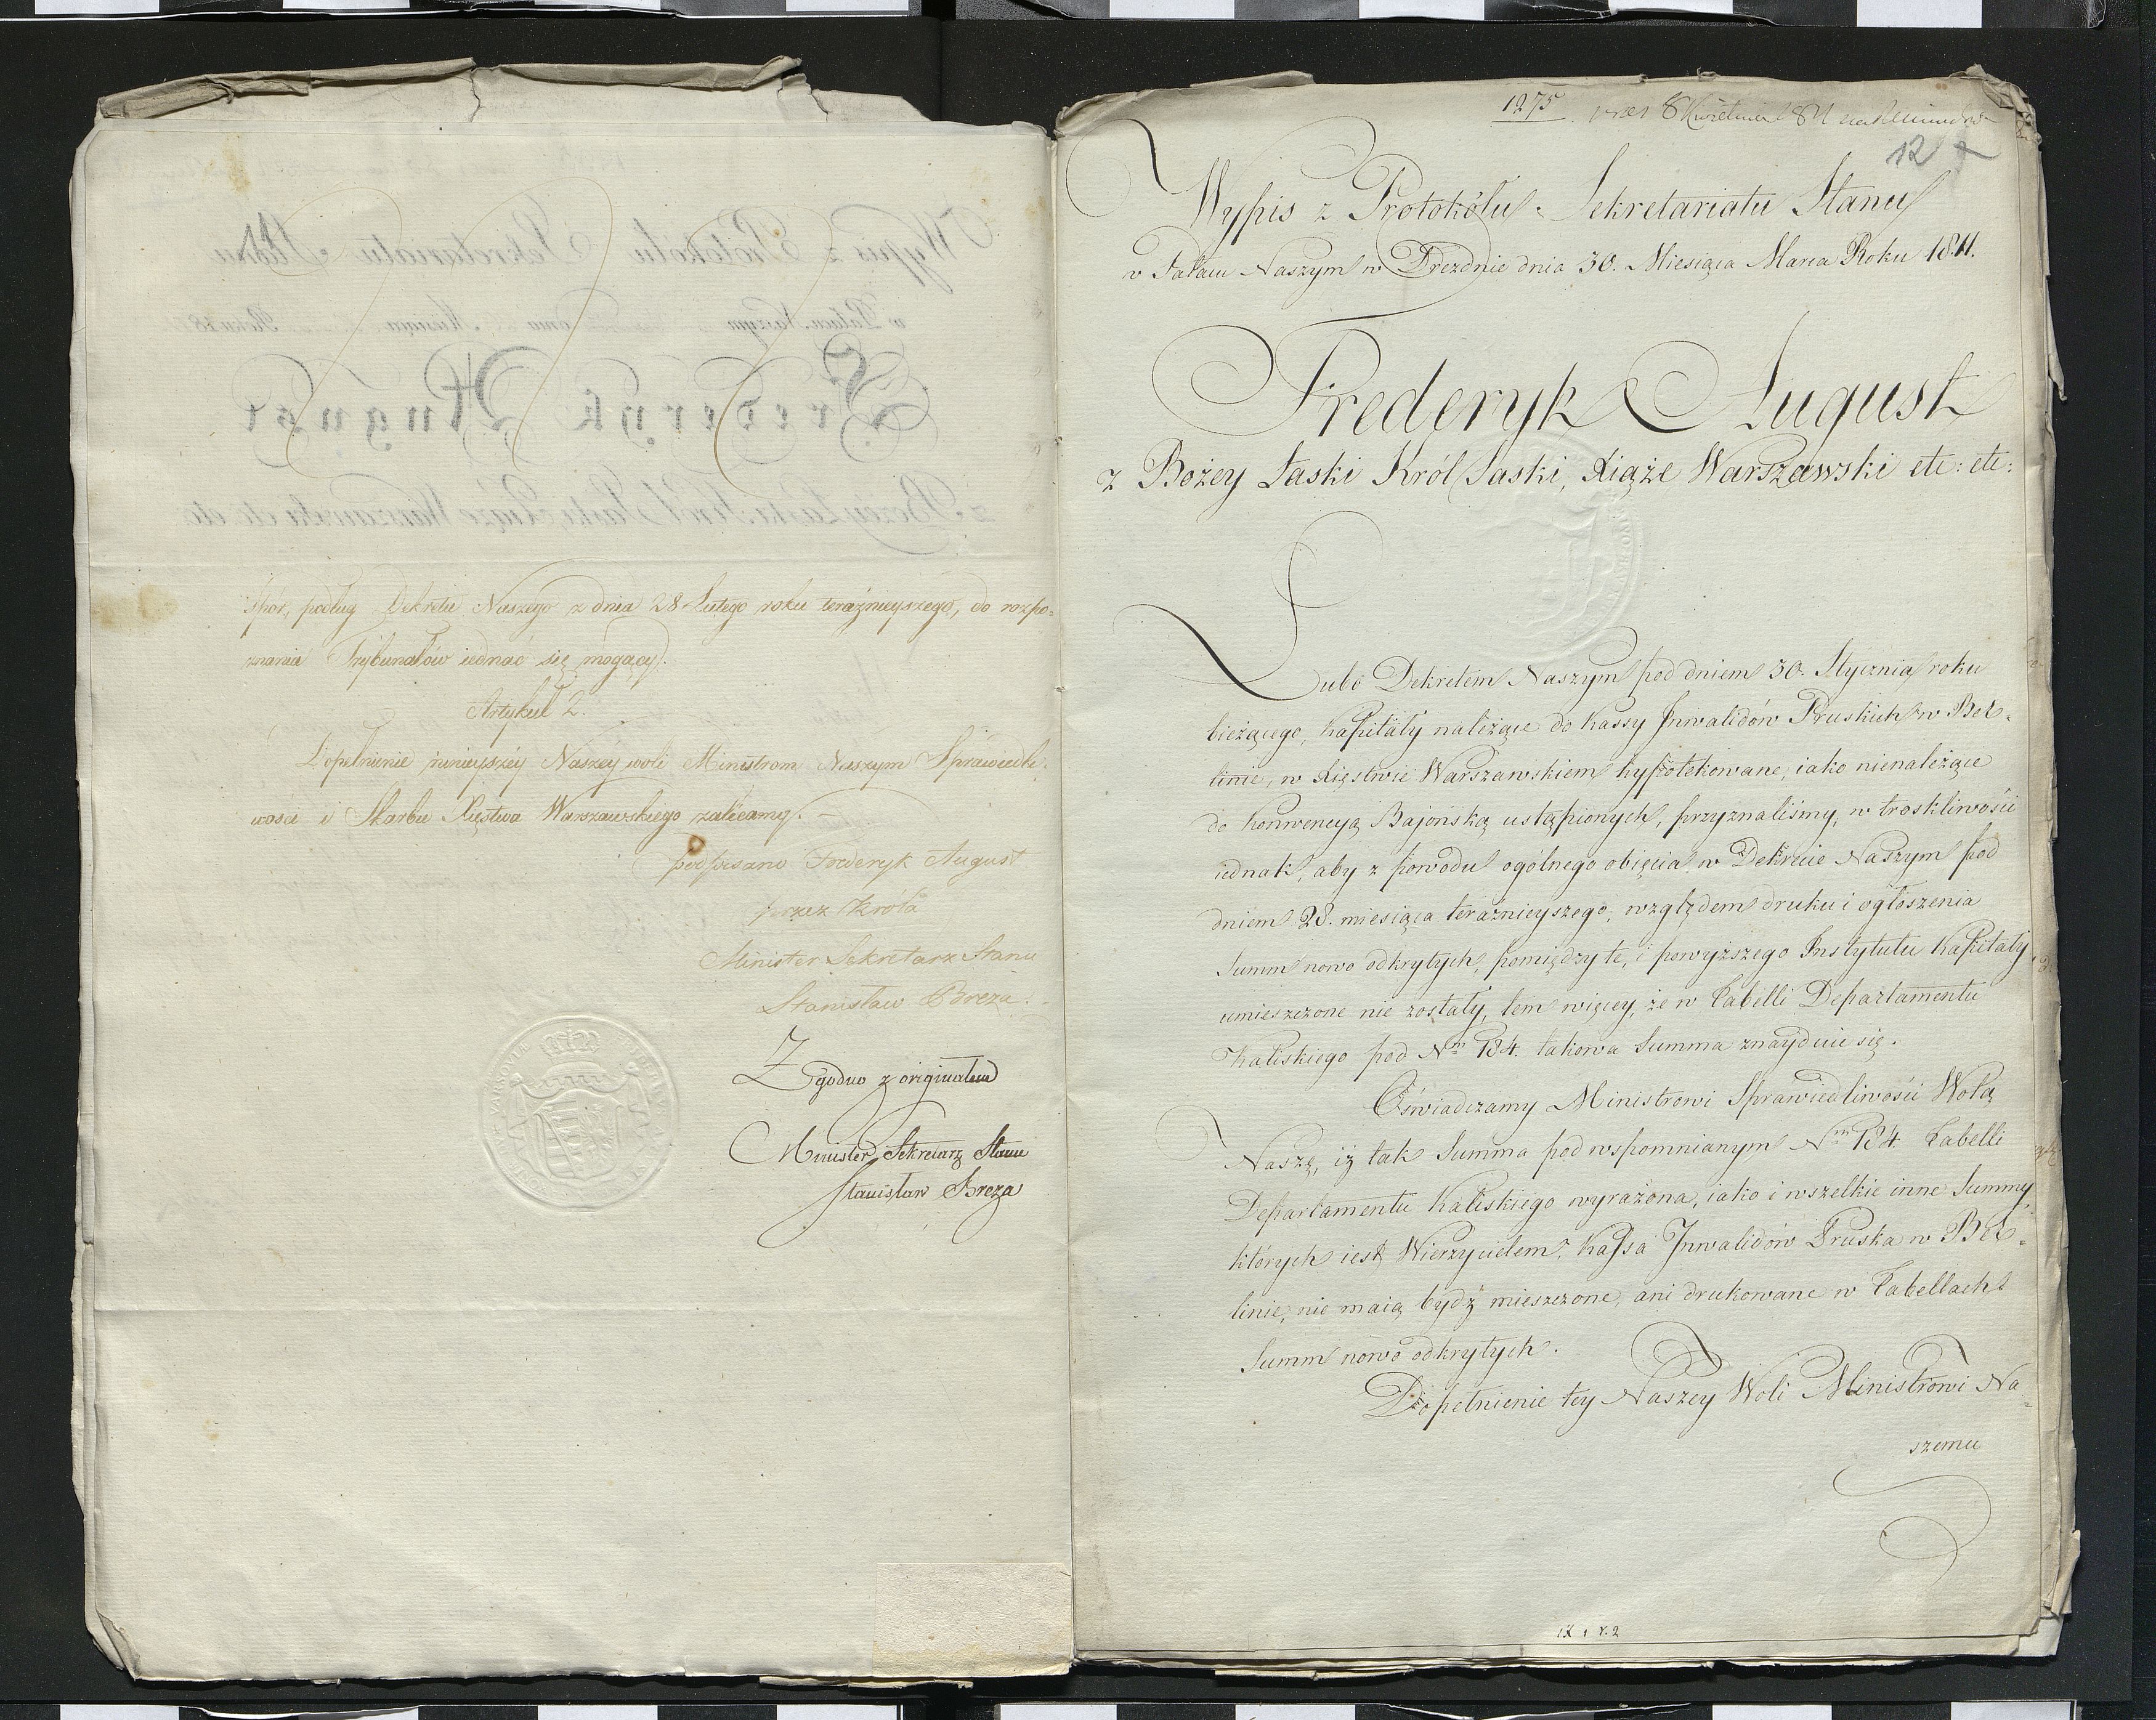 spór, podług Dekretu Naszego z dnia 28 Lutego roku teraźnieyszego, do rozpo-
znania Trybunałów iednać się mogący.
Artykuł 2.
Dopełnienie ninieyszéy Naszéy woli Ministrom Naszym Sprawiedli-
wości i Skarbu Xięstwa Warszawskiego zalécamy. –
podpisano Frederyk August
przez Króla
Minister Sekretarz Stanu
Stanisław Breza.
Zgodno z originałem
Minister Sekretarz Stanu
Stanisław Breza
1275 8 Kwietnia 1811
12
Wypis z Protokółu Sekretariatu Stanu
w Pałacu Naszym w Dreźdnie dnia 30. Miesiąca Marca Roku 1811.
Frederyk August
z Bożey Łaski Król Saski, Xiąże Warszawski etc: etc:
Lubo Dekretem Naszym pod dniem 30. Stycznia roku
bieżącego, kapitały należące do Kassy Inwalidów Pruskich w Ber-
linie, w Xięstwie Warszawskiem hypotekowane, iako nienależące
do konwencyą Bajońską ustąpionych, przyznaliśmy, w troskliwości
iednak, aby z powodu ogólnego obięcia w Dekrecie Naszym pod
dniem 28. miesiąca teraźnieyszego, względem druku i ogłoszenia
Summ nowo odkrytych, pomiędzy te, i powyższego Instytutu Kapitały,
umieszczone nie zostały, tem więcey, że w Tabelli Departamentu
Kaliskiego pod Nrm 134. takowa Summa znayduie się.
Oświadczamy Ministrowi Sprawiedliwości Wolą
Naszę, iż tak Summa pod wspomnianym Nrm 134 Tabelli
Departamentu Kaliskiego wyrażona, iako i wszelkie inne Summy,
których iest Wierzycielem, Kassa Inwalidów Pruska w Ber-
linie, nie maią bydź mieszczone, ani drukowane w Tabellach
Summ nowo odkrytych.
Dopełnienie tey Naszey Woli Ministrowi Na-
szemu